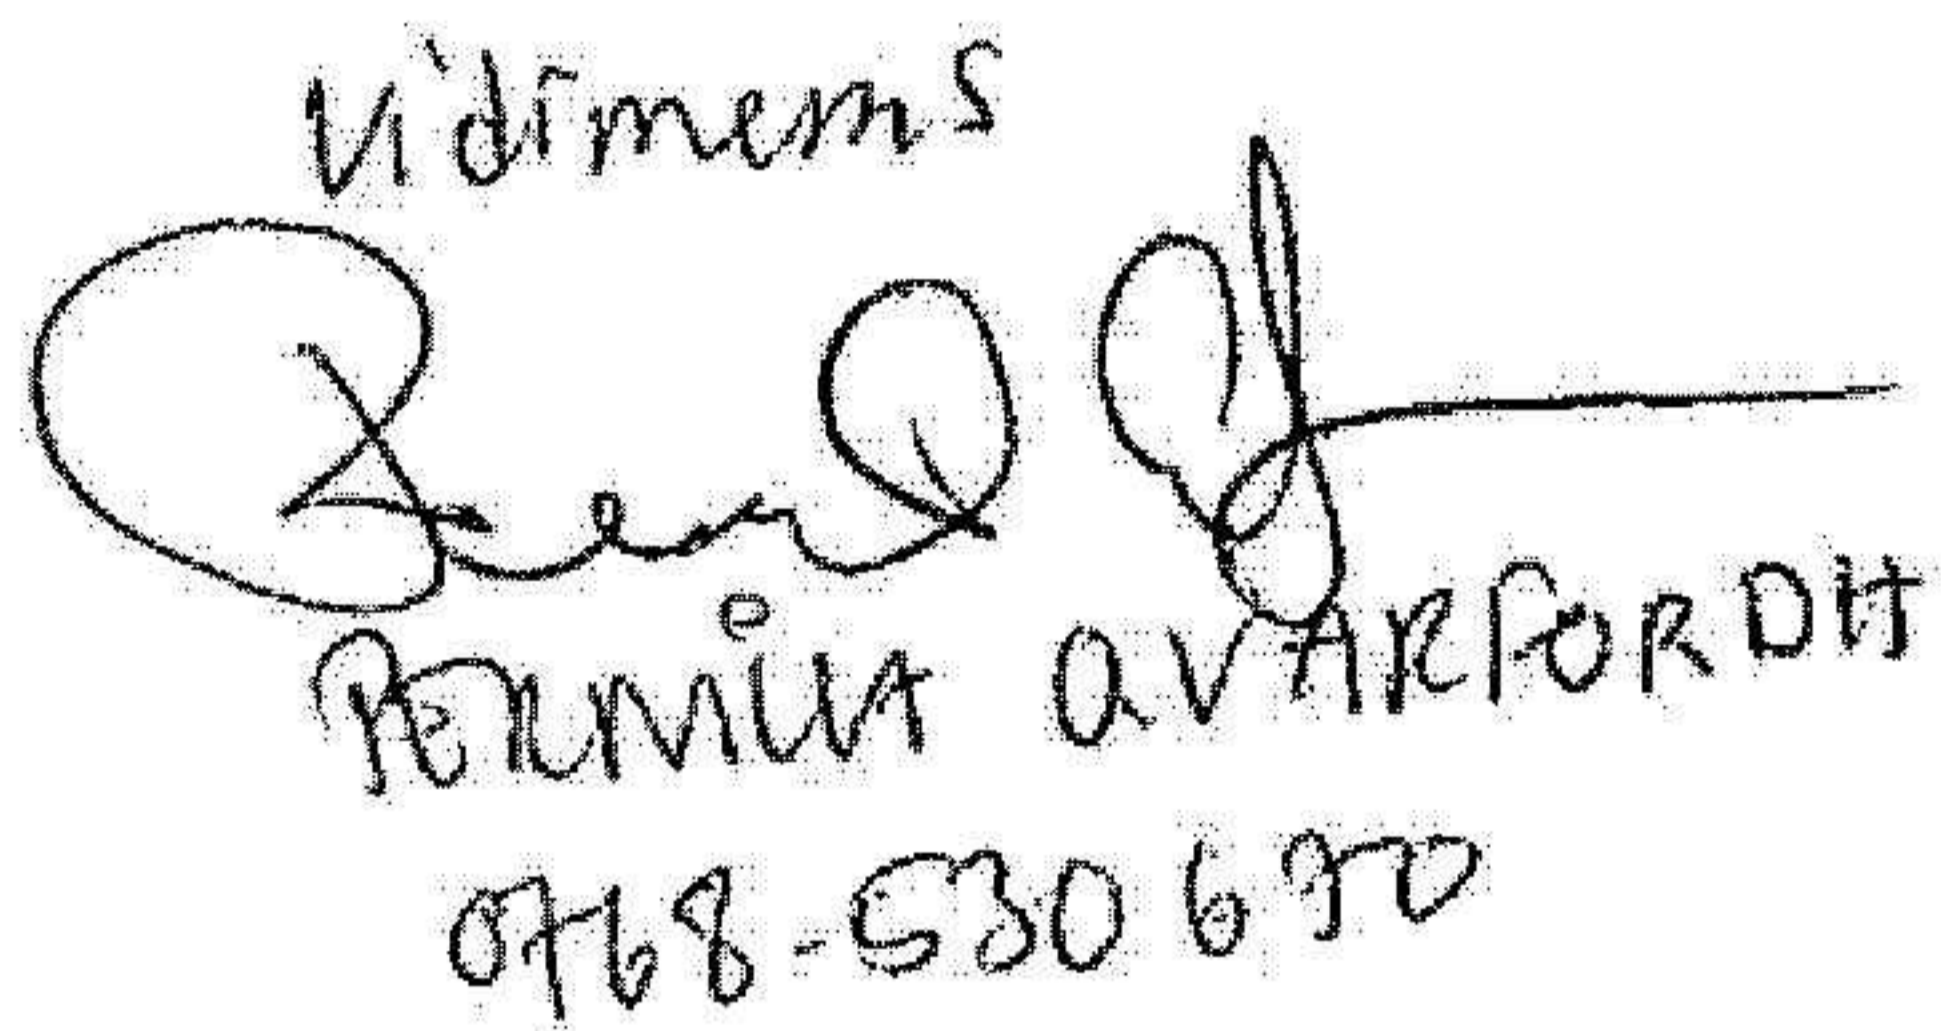 Vidimeras
PERNILLA QVARFORDH
0768-530690